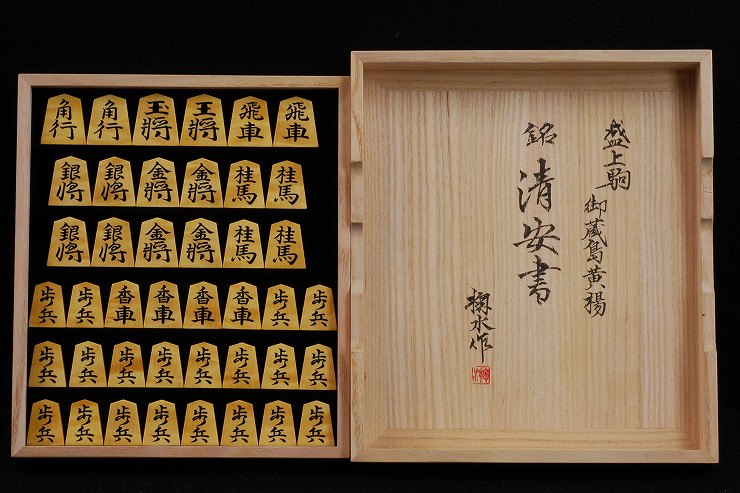 角行 角行 玉将 王将 飛車 飛車
銀将 銀将 金将 金将 桂馬 桂馬
銀将 銀将 金将 金将 桂馬 桂馬
歩兵 歩兵 香車 香車 香車 香車 歩兵 歩兵
歩兵 歩兵 歩兵 歩兵 歩兵 歩兵 歩兵 歩兵
歩兵 歩兵 歩兵 歩兵 歩兵 歩兵 歩兵 歩兵
盛上駒
御蔵島黄楊
銘
清安書
掬水作